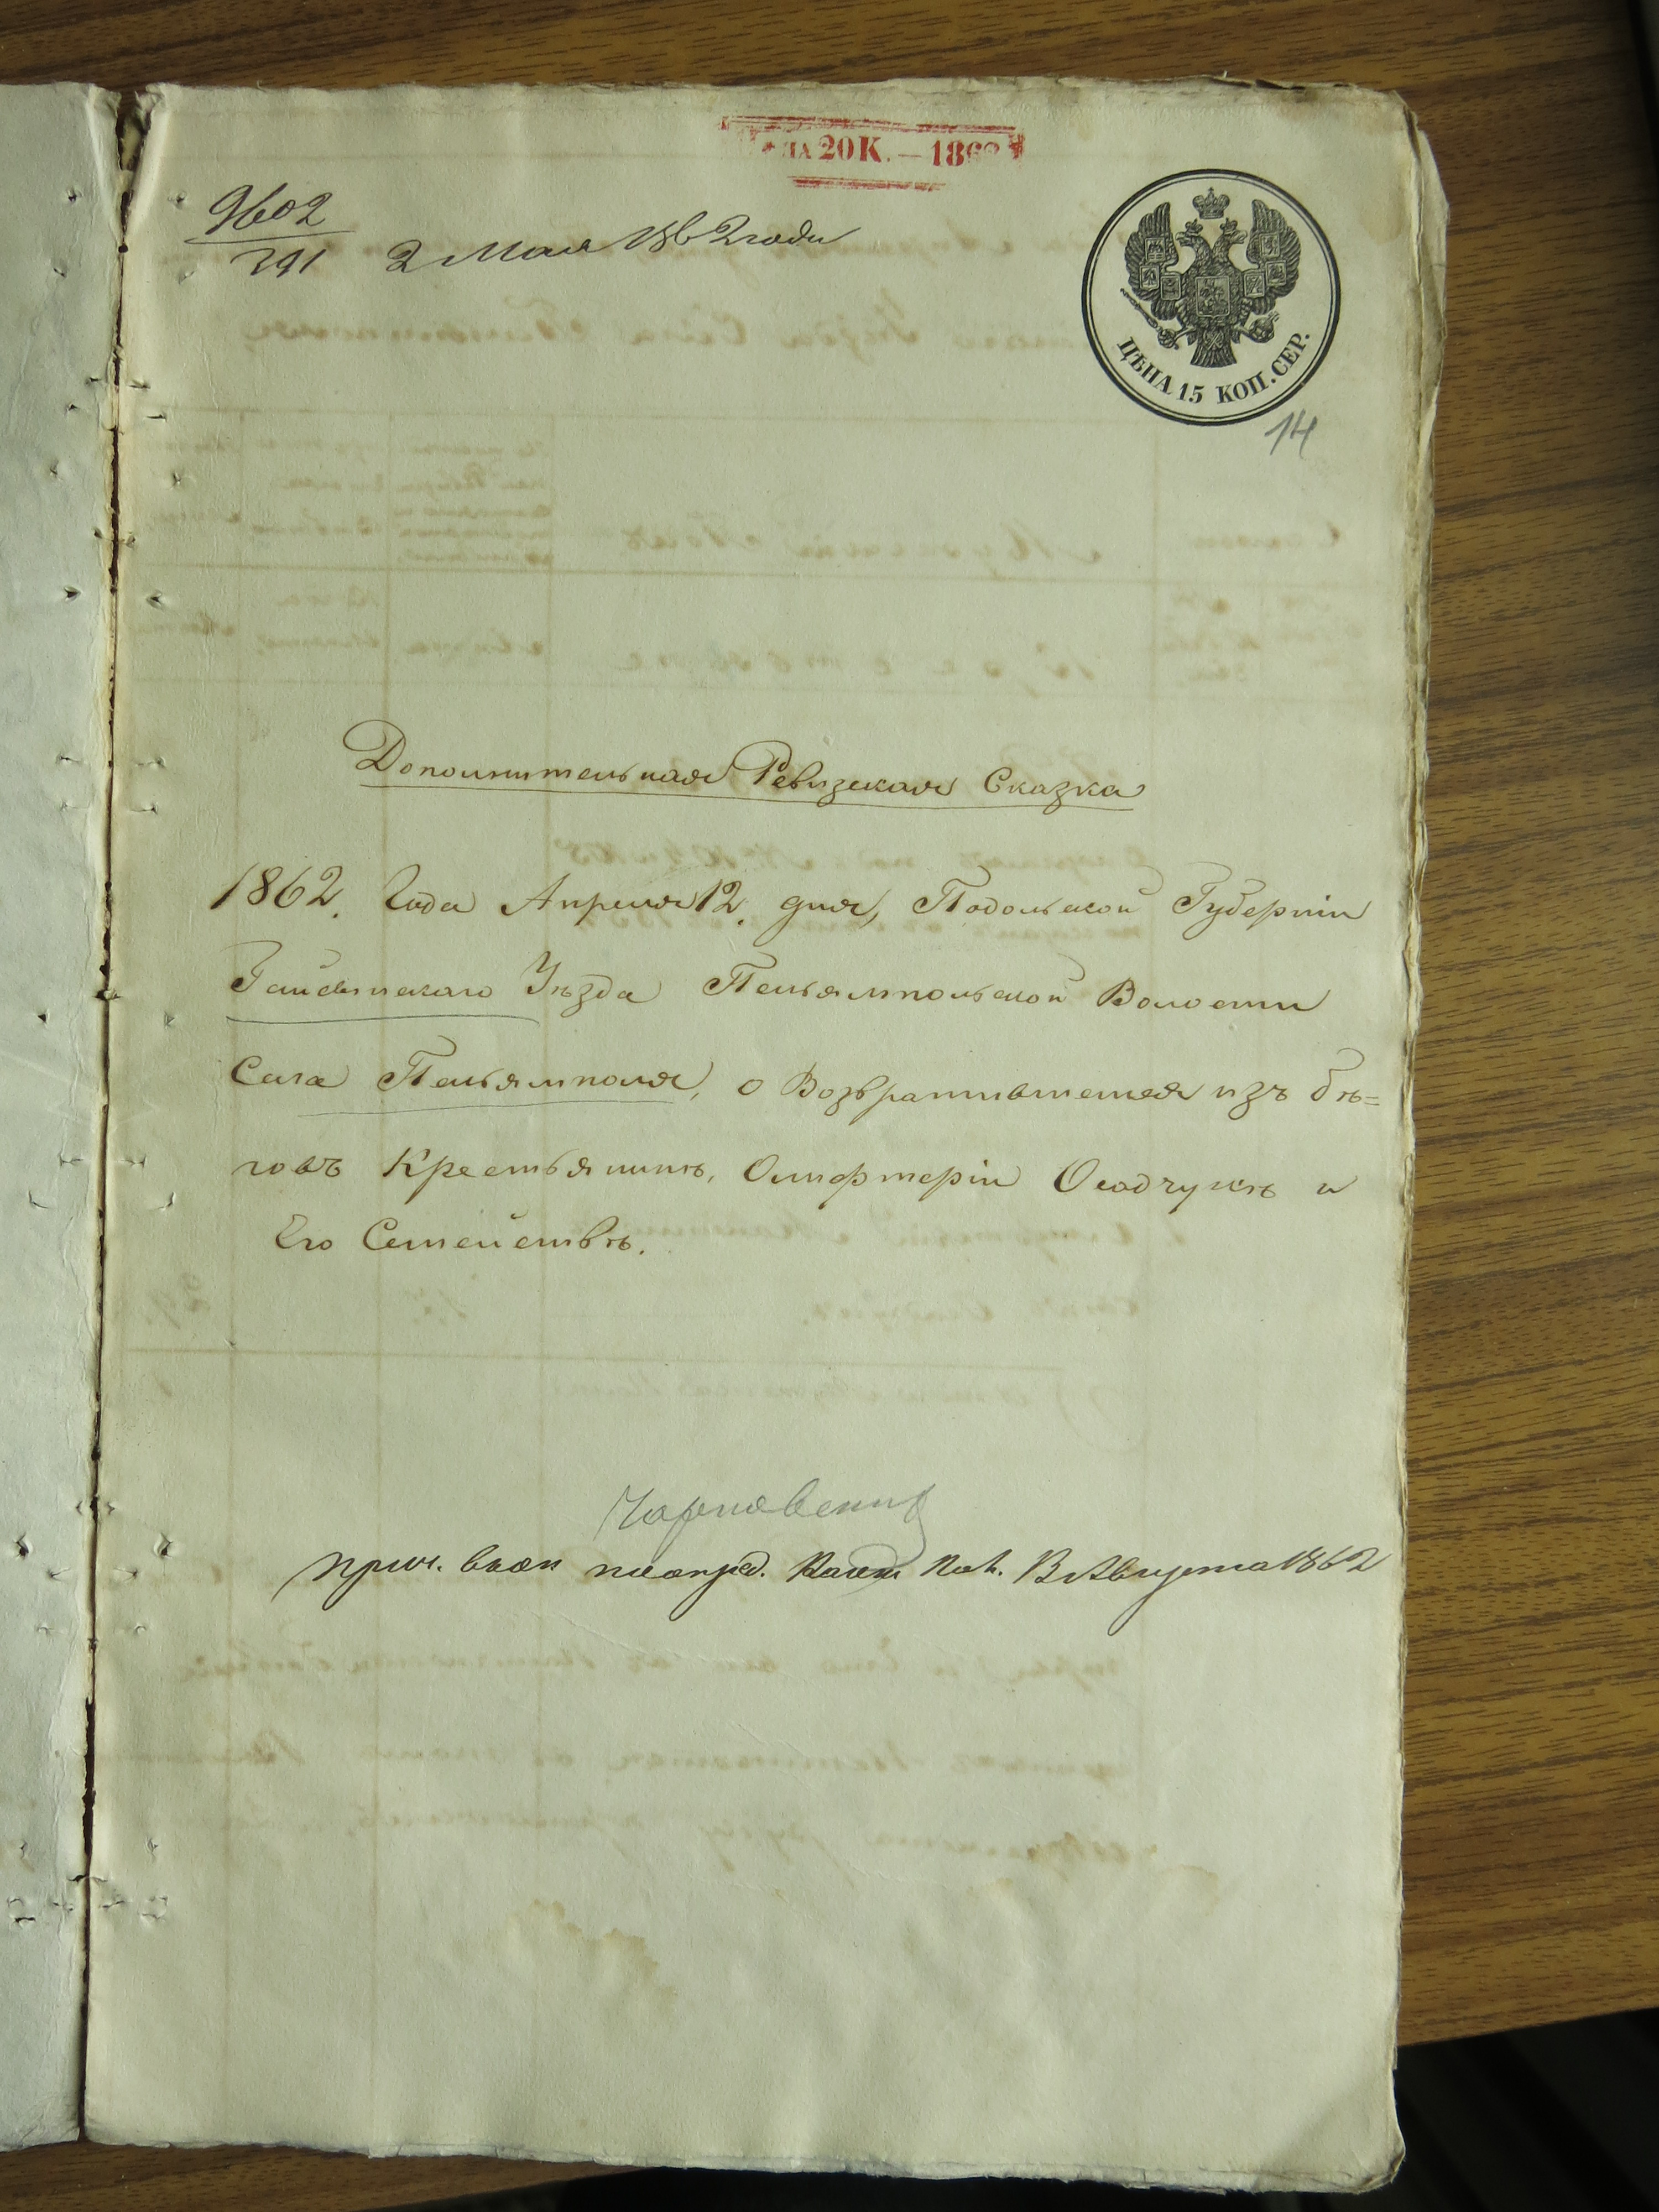 20 К. — 186
9602
291 2 Мая 1862 года
ЦѢНА 15 КОП. СЕР.
14
Дополнительная Ревизская Сказка
1862. Года Апреля 12. дня, Подольской Губерніи
Гайсинскаго Уѣзда Теньямпольской Волости
Села Теньямполя, о Возвратившемся изъ бѣ=
говъ Крестьянинѣ, Олифтеріи Осадчукѣ и
Его Семействѣ.
прич.
Августа 1862